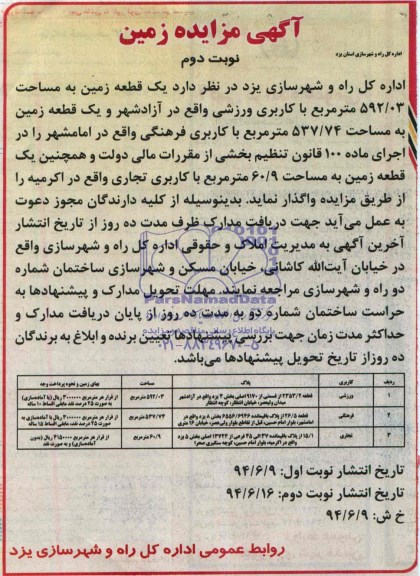 آگهی مزایده زمین
اداره کل راه و شهرسازی استان یزد
نوبت دوم
اداره کل راه و شهرسازی یزد در نظر دارد یک قطعه زمین به مساحت
۵۹۲/۰۳ مترمربع با کاربری ورزشی واقع در آزادشهر و یک قطعه زمین
به مساحت ۵۳۷/۷۴ مترمربع با کاربری فرهنگی واقع در امامشهر را در
اجرای ماده ۱۰۰ قانون تنظیم بخشی از مقررات مالی دولت و همچنین یک
قطعه زمین به مساحت ۶۰/۹ مترمربع با کاربری تجاری واقع در اکرمیه را
از طریق مزایده واگذار نماید. بدینوسیله از کلیه دارندگان مجوز دعوت
به عمل می‌آید جهت دریافت مدارک ظرف مدت ده روز از تاریخ انتشار
آخرین آگهی به مدیریت املاک و حقوقی اداره کل راه و شهرسازی واقع
در خیابان آیت‌الله کاشانی، خیابان مسکن و شهرسازی ساختمان شماره
دو راه و شهرسازی مراجعه نمایند. مهلت تحویل مدارک و پیشنهادها به
حراست ساختمان شماره دو به مدت ده روز از پایان دریافت مدارک و
حداکثر مدت زمان جهت بررسی پیشنهادها تعیین برنده و ابلاغ به برندگان
ده روزاز تاریخ تحویل پیشنهادها می‌باشد.
ParsNamadData
۰۲۱-۸۸۳۴۹۶۷۰-۵
ردیف کاربری پلاک مساحت بهای زمین و نحوه پرداخت وجه
۱ ورزشی قطعه ۲۳۵۳/۲ از قسمتی از ۹۱۷۰ اصلی بخش ۳ یزد واقع در آزادشهر ۵۹۲/۰۳ مترمربع از قرار هر مترمربع ۳۰۰۰۰۰۰ ریال (با آماده‌سازی)
میدان ولیعصر، خیابان انتظار، کوچه انتظار به صورت ۲۵ درصد نقد، مابقی اقساط ۱۰ ساله
۲ فرهنگی قطعه ۲۴۶/۵ از پلاک باقیمانده ۶۵۵۶/۶۹۴۶ بخش ۵ یزد واقع در ۵۳۷/۷۴ مترمربع از قرار هر مترمربع ۳۰۰۰۰۰۰ ریال با آماده‌سازی به
امامشهر، بلوار امام حسین، قبل از تقاطع بلوار ولی‌عصر، خیابان ۱۶ متری صورت ۲۵ درصد نقد، مابقی اقساط ۱۵ ساله
۳ تجاری ۱۵/۱ از پلاک باقیمانده ۴۳۷ الی ۴۵ فرعی از ۱۳۷۴۲ اصلی بخش ۵ یزد ۶۰/۹ از قرار هر مترمربع ۳۱۵۰۰۰۰۰ ریال (بدون
واقع در اکرمیه، بلوار امام حسین، کوچه سنگبری سحر آماده‌سازی) و به صورت نقد
تاریخ انتشار نوبت اول: ۹۴/۶/۹
تاریخ انتشار نوبت دوم: ۹۴/۶/۱۶
خ ش: ۹۴/۶/۹
روابط عمومی اداره کل راه و شهرسازی یزد